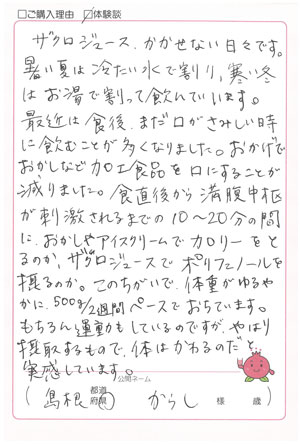 □ご購入理由 ☑体験談
ザクロジュース、かかせない日々です。
暑い夏は冷たい水で割り、寒い冬
はお湯で割って飲んでいます。
最近は食後、まだ口がさみしい時
に飲むことが多くなりました。おかげで
おかしなど加工食品を口にすることが
減りました。食直後から満腹中枢
が刺激されるまでの10〜20分の間
に、おかしやアイスクリームでカロリーをと
るのか、ザクロジュースでポリフェノールを
摂るのか。このちがいで、体重がゆるや
かに、500g/2週間ペースでおちています。
もちろん運動もしているのですが、やはり
摂取するもので、体はかわるのだと
実感しています。
公開ネーム
(島根 都道府県 からし 様 歳)